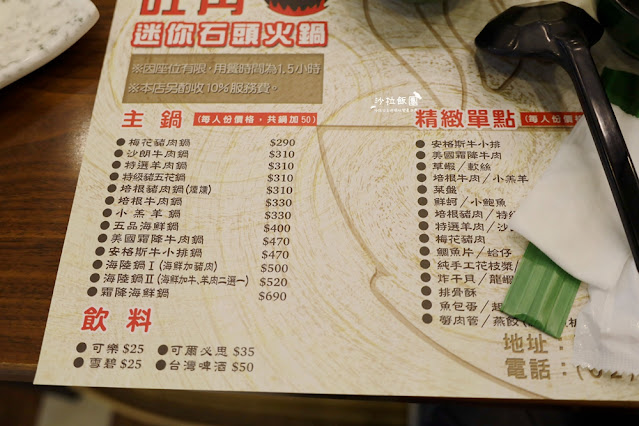 旺角
迷你石頭火鍋
※因座位有限,用餐時間為1.5小時
※本店另酌收10%服務費。
沙拉飯團
主鍋 (每人份價格,共鍋加50)
梅花豬肉鍋 $290
沙朗牛肉鍋 $310
特選羊肉鍋 $310
特級豬五花鍋 $310
培根豬肉鍋(煙燻) $310
培根牛肉鍋 $330
小羔羊鍋 $330
五品海鮮鍋 $400
美國霜降牛肉鍋 $470
安格斯牛小排鍋 $470
海陸鍋Ⅰ(海鮮加豬肉) $500
海陸鍋Ⅱ(海鮮加牛、羊肉二選一) $520
霜降海鮮鍋 $690
飲料
可樂$25
可爾必思$35
雪碧$25
台灣啤酒$50
精緻單點 (每人份價格
安格斯牛小排
美國霜降牛肉
草蝦/軟絲
培根牛肉/小羔羊
菜盤
鮮蚵/小鮑魚
培根豬肉/特級
特選羊肉/沙
梅花豬肉
鯛魚片/蛤仔
純手工花枝漿
炸干貝/龍蝦
排骨酥
魚包蛋/
勞肉管/燕餃(
地址:
電話:(02)